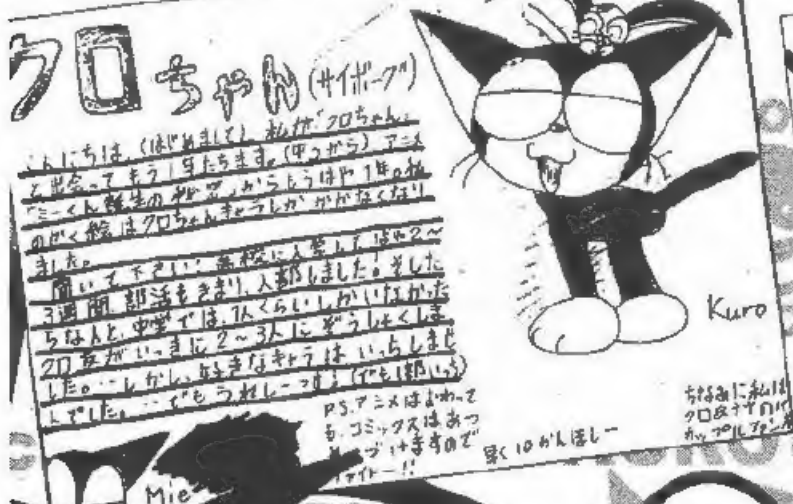 クロちゃん(サイボーグ)
こんにちは、(はじめまして)、私が「クロちゃん」
と出会ってもう1年たちます。(早っから)アニメ
「ミーくん誕生の秘密」からもうはや1年。私
のかく絵はクロちゃんキャラしかかかなくなり
ました。
聞いて下さい!高校に入学してはや2〜
3週間、部活もきまり、入部しました。そした
らなんと、中学では、1人くらいしかいなかった
クロ友がいっきに2〜3人にぞうしょくしま
した。…しかし、好きなキャラはいっちしませ
んでした。…でもうれしーっす!(でも1部いっち)
P.S.アニメはおわって
も、コミックスはあっ
づけますので
ファイトー!!
早く10かんほしー
Kuro
ちなみに私は
クロ&ナナの
カップルファン
Mie